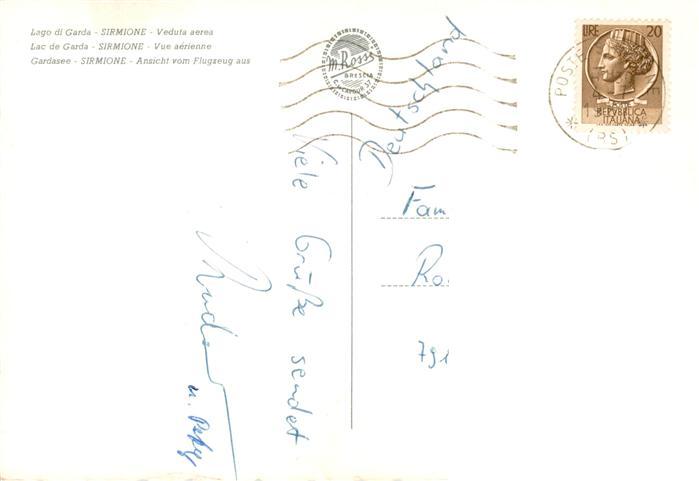 Lago di Garda - SIRMIONE - Veduta aerea
Lac de Garda - SIRMIONE - Vue aérienne
Gardasee - SIRMIONE - Ansicht vom Flugzeug aus
m. Rossi
BRESCIA
LIRE 20
REPVBBLICA
ITALIANA
POSTE
(BS)
Deutschland
Fam
Ro
791
Viele Grüße sendet
u.